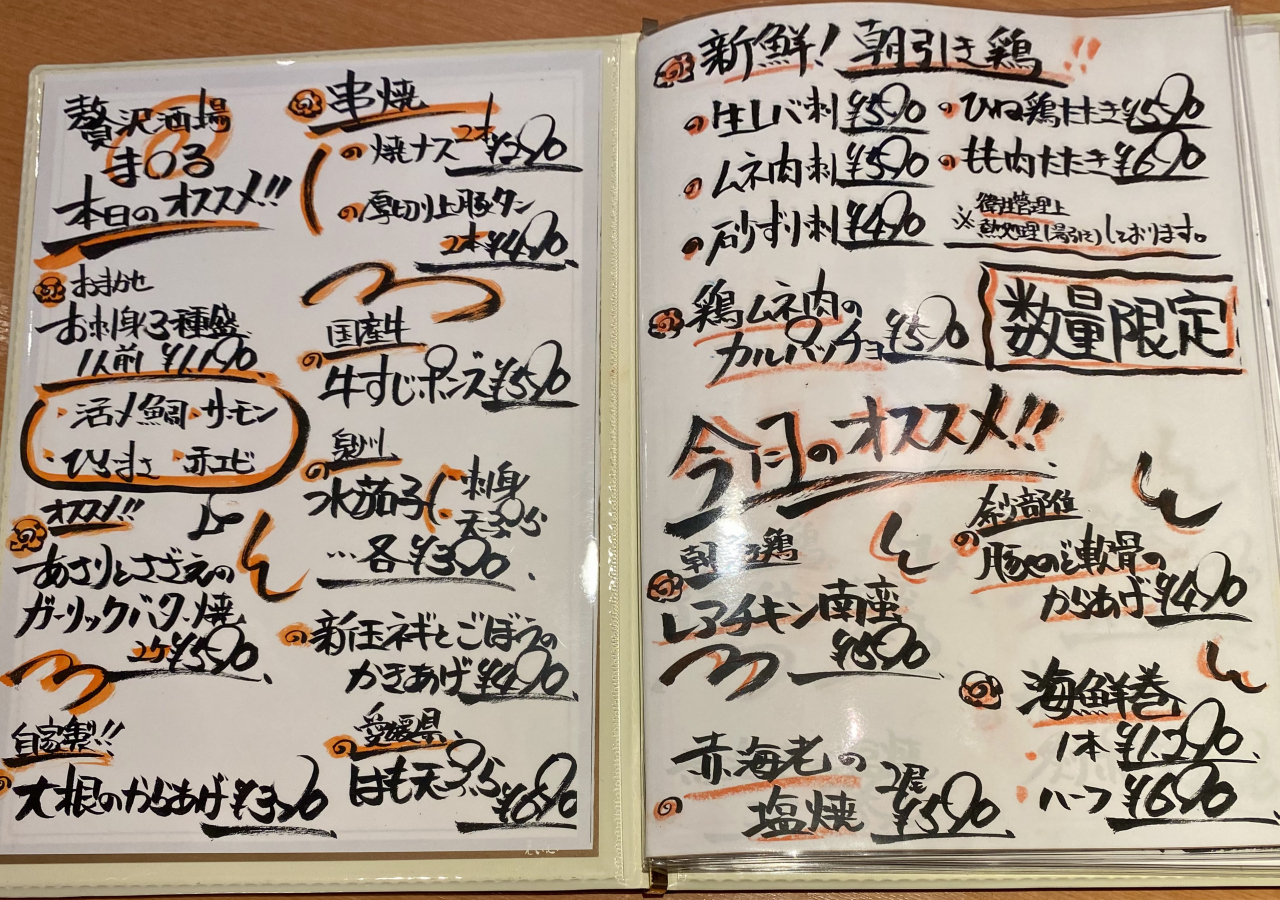 贅沢酒場
まのる
本日のオススメ!!
おまかせ
お刺身3種盛
1人前 ¥1,190.
・活〆鯛・サーモン
・ひらまさ・赤エビ
オススメ!!
あさりとさざえの
ガーリックバター焼
2ケ¥590.
自家製!!
大根のからあげ¥390.
串焼
焼ナス2本¥290
厚切り上豚タン
2本¥490.
国産牛
牛すじポンズ¥590
泉州
水茄子(刺身
天ぷら
…各¥390.
新玉ネギとごぼうの
かきあげ¥490.
愛媛県.
はも天ぷら
¥690.
新鮮!朝引き鶏!!
生レバ刺¥590
ムネ肉刺¥590
砂ずり刺¥490
ひね鶏たたき¥590
もも肉たたき¥690
衛生管理上
※熱処理(湯引き)しております。
鶏ムネ肉の
カルパッチョ¥590
数量限定
今日のオススメ!!
朝引き鶏
レアチキン南蛮
¥590.
赤海老の
塩焼 2尾¥590.
希少部位
豚のど軟骨の
からあげ¥490.
海鮮巻
1本¥1,290.
ハーフ¥690.